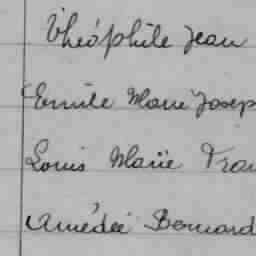 Théophile Jean
Emile Marie Josep
Louis Marie Fran
Amédée Bernard